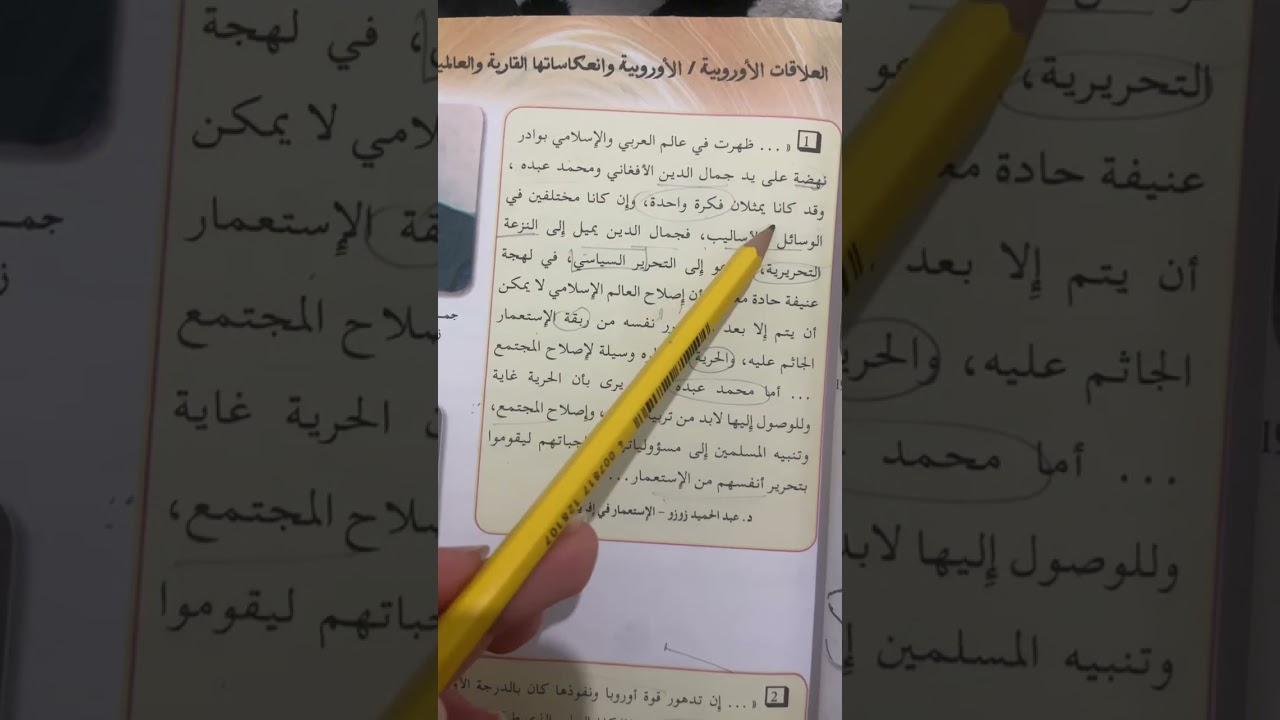 العلاقات الأوروبية / الأوروبية وانعكاساتها القارية والعالمي
1 « ... ظهرت في عالم العربي والإسلامي بوادر
نهضة على يد جمال الدين الأفغاني ومحمد عبده ،
وقد كانا يمثلان فكرة واحدة، وإن كانا مختلفين في
الوسائل الأساليب، فجمال الدين يميل إلى النزعة
التحريرية، عو إلى التحرير السياسي، في لهجة
عنيفة حادة مع أن إصلاح العالم الإسلامي لا يمكن
أن يتم إلا بعد رر نفسه من ربقة الإستعمار
الجاثم عليه، والحرية ره وسيلة لإصلاح المجتمع
... أما محمد عبده يرى بأن الحرية غاية
وللوصول إليها لابد من تربية وإصلاح المجتمع،
وتنبيه المسلمين إلى مسؤولياتهم جباتهم ليقوموا
بتحرير أنفسهم من الإستعمار ...
د. عبد الحميد زوزو - الإستعمار في إف
2 « ... إن تدهور قوة أوروبا ونفوذها كان بالدرجة الأو